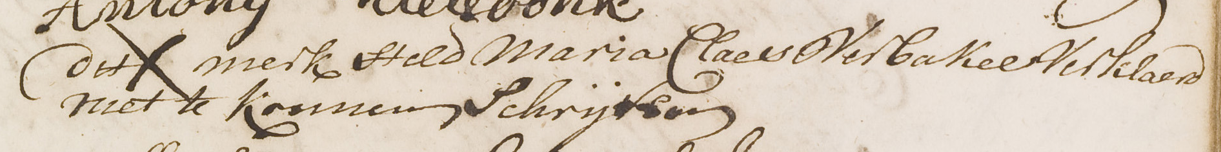 Antony
dit X merk Steld Maria Claes Verbakel Verklaerd
niet te konnen Schrijven